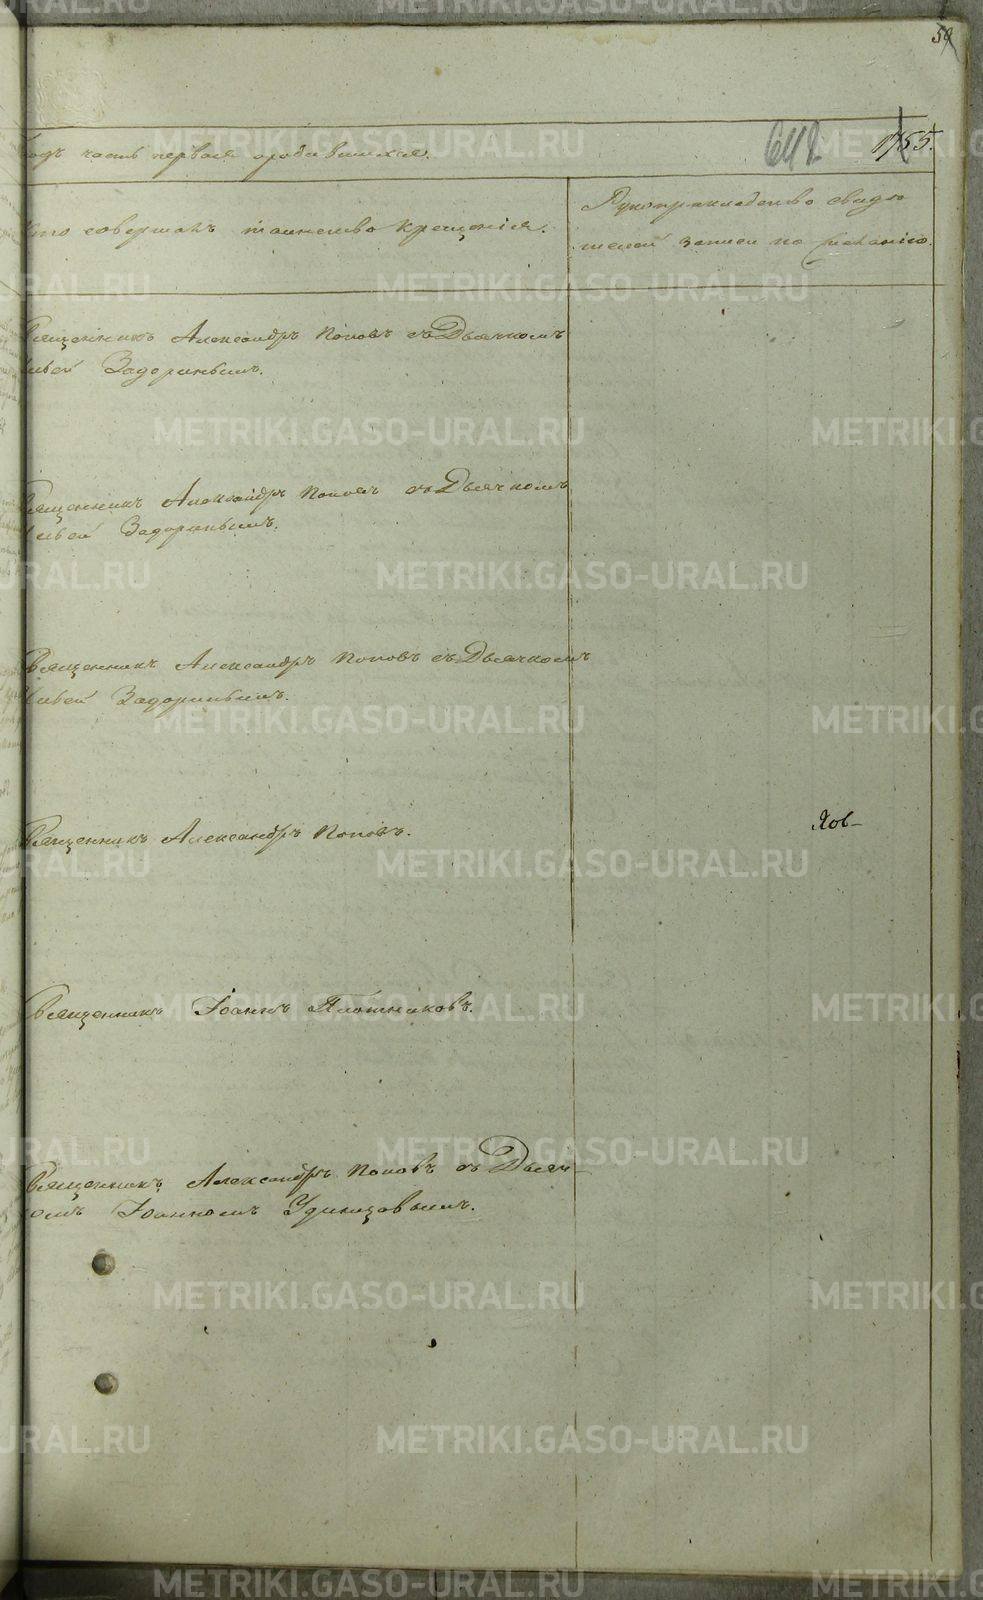 50
годъ часть первая о родившихся.
642
155.
Кто совершалъ таинство крещенія.
Рукоприкладство свидѣ
телей записи по желанію.
Священникъ Александръ Поповъ съ Дьячкомъ
Задоринымъ.
Священникъ Александръ Поповъ съ Дьячкомъ
Задоринымъ.
Священникъ Александръ Поповъ съ Дьячкомъ
Задоринымъ.
Священникъ Александръ Поповъ.
Яов-
Священникъ Іоаннъ Плотниковъ.
Священникъ Александръ Поповъ съ Дьяч-
комъ Іоанномъ Удинцовымъ.
METRIKI.GASO-URAL.RU